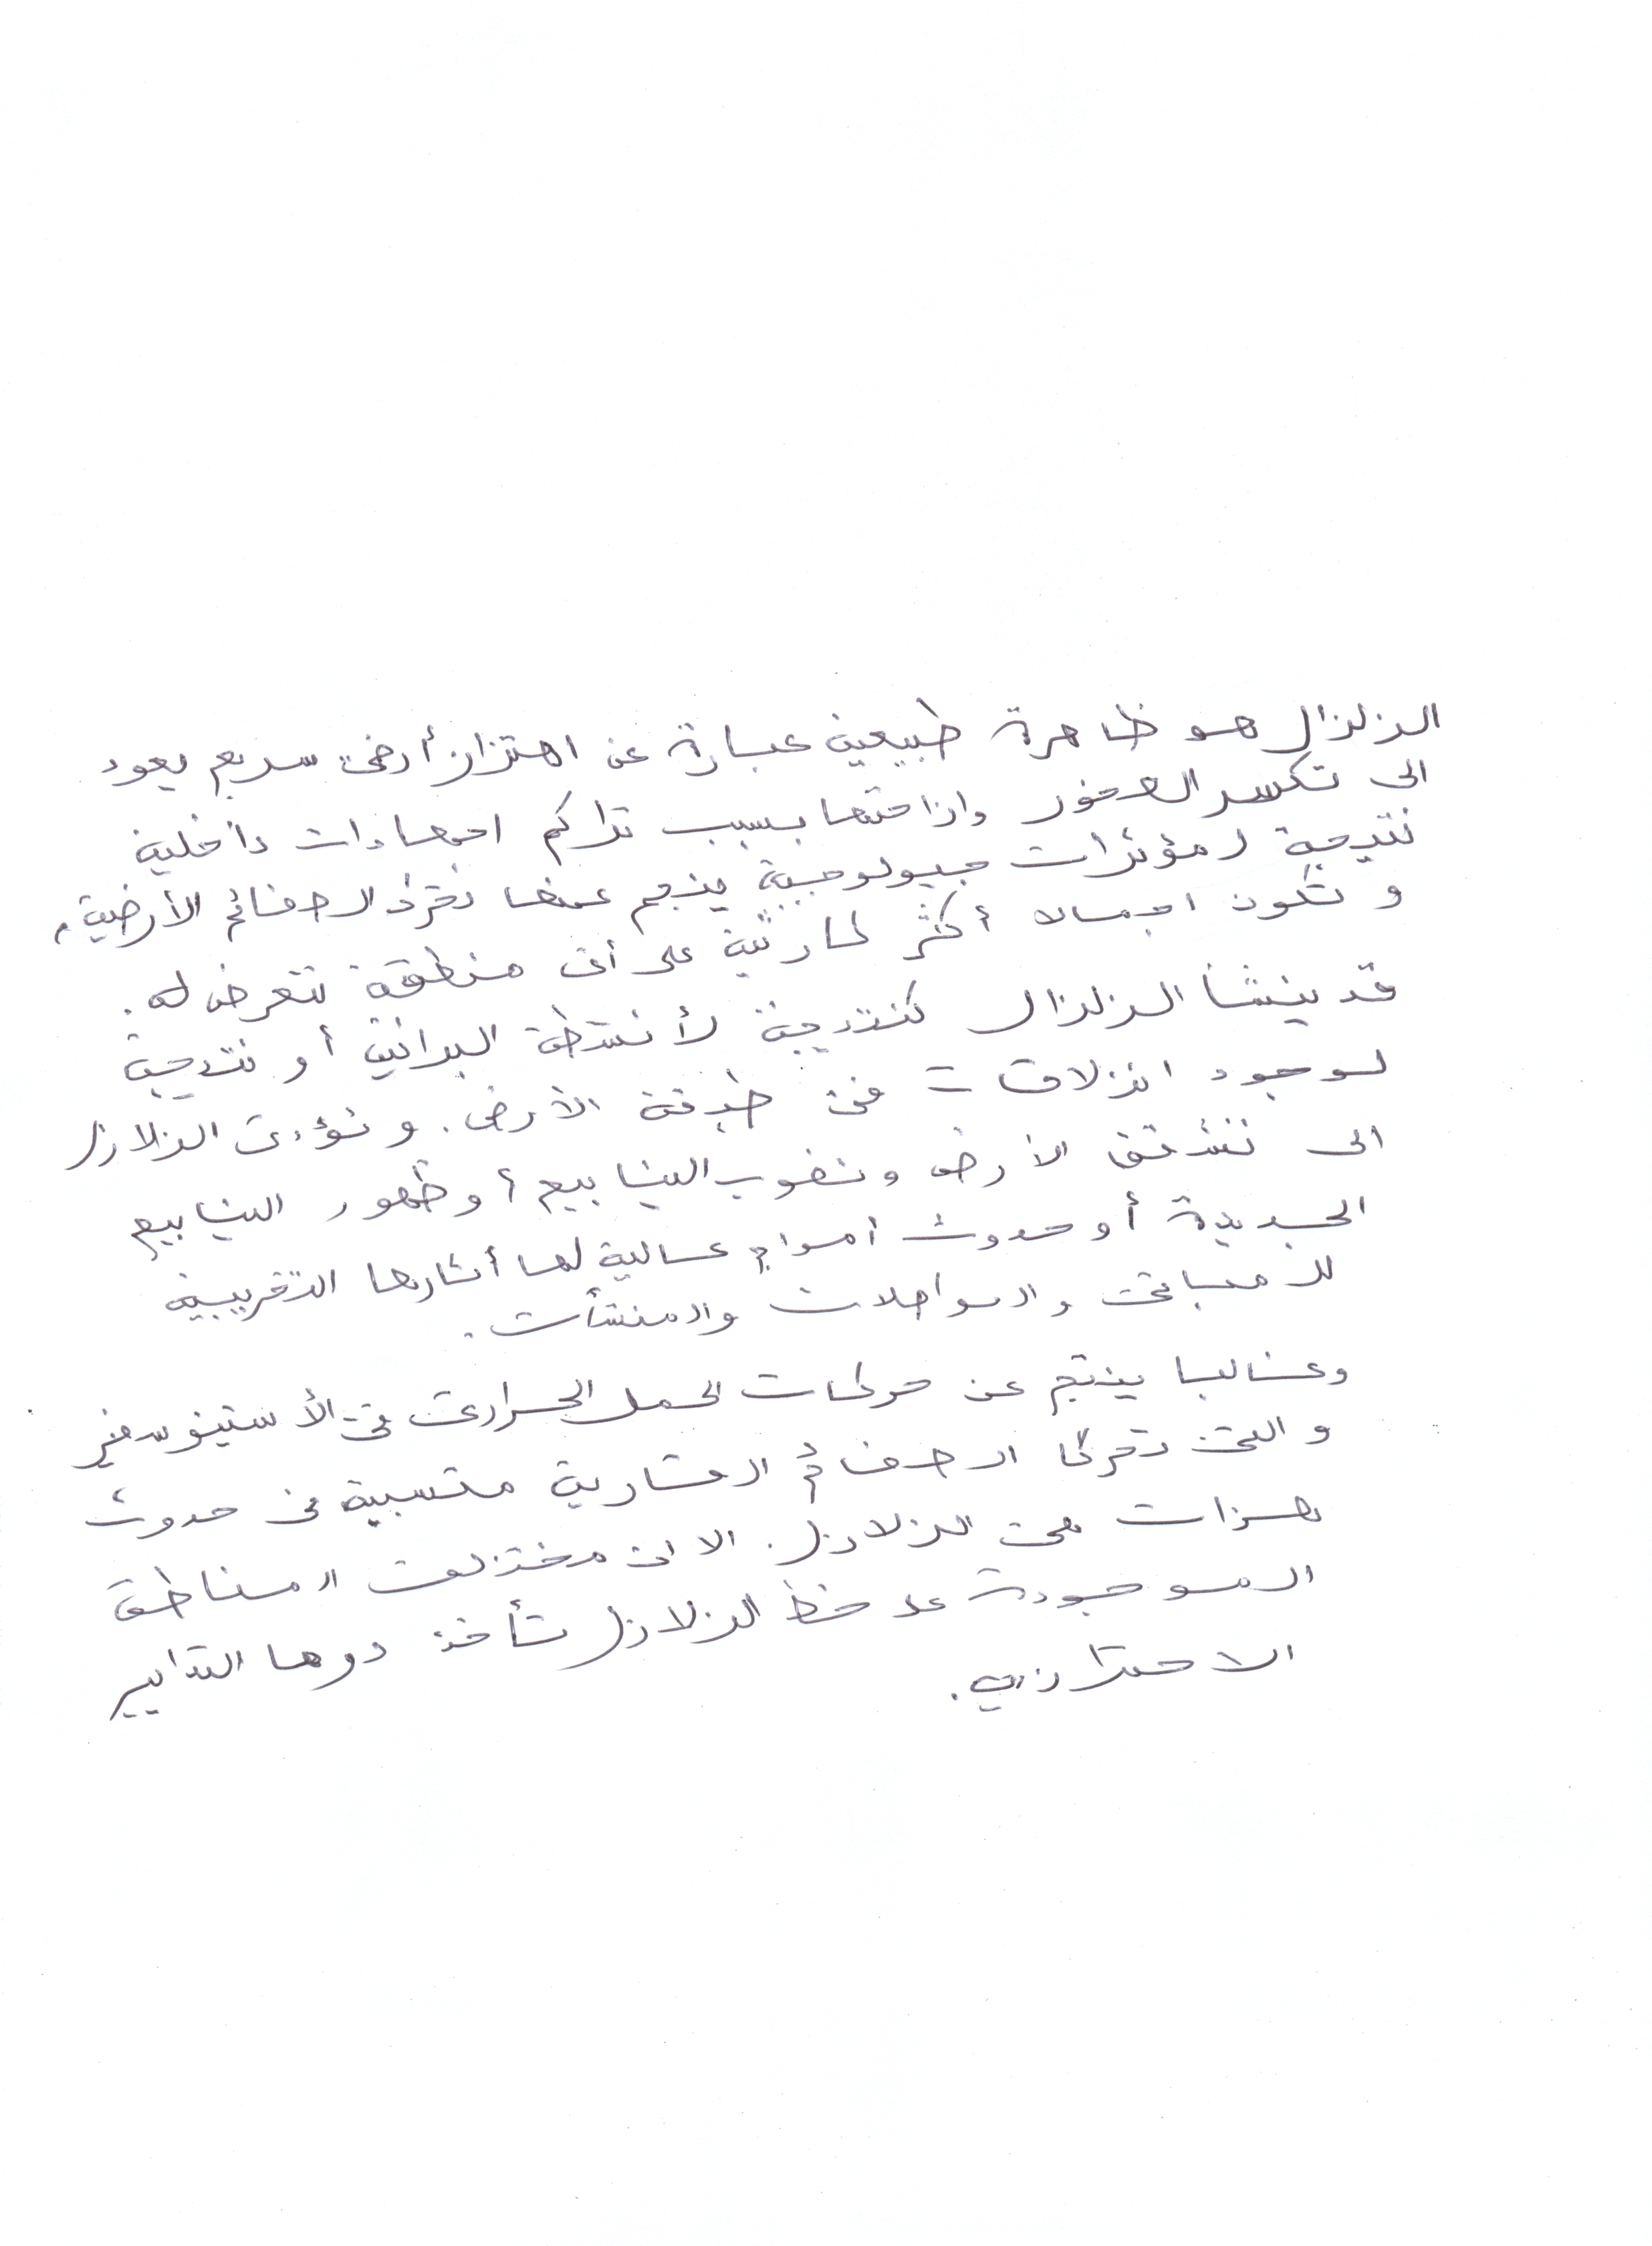 الزلزال هو ظاهرة طبيعية عبارة عن اهتزاز أرضي سريع يعود
الى تكسر الصخور وازاحتها بسبب تراكم اجهادات داخلية
نتيجة لمؤثرات جيولوجية ينجم عنها تحرك الصفائح الأرضية،
و تكون اجمالا أكثر كارثية على أي منطقة تتعرض له.
قد ينشأ الزلزال كنتيجة لأنشطة البراكين أو نتيجة
لوجود انزلاقات في طبقة الأرض. و تؤدي الزلازل
الى تشقق الأرض ونضوب الينابيع أو ظهور الينابيع
الجديدة أو حدوث أمواج عالية لها أثارها التخريبية
للمباني والمواصلات والمنشأت.
وغالبا ينتج عن حركات الحمل الحراري في الأستينوسفير
والتي تحرك الصفائح القارية متسببة في حدوث
هزات هي الزلازل. الا ان مختلف المناطق
الموجودة على خط الزلازل تأخذ دوما التدابير
الاحترازية.